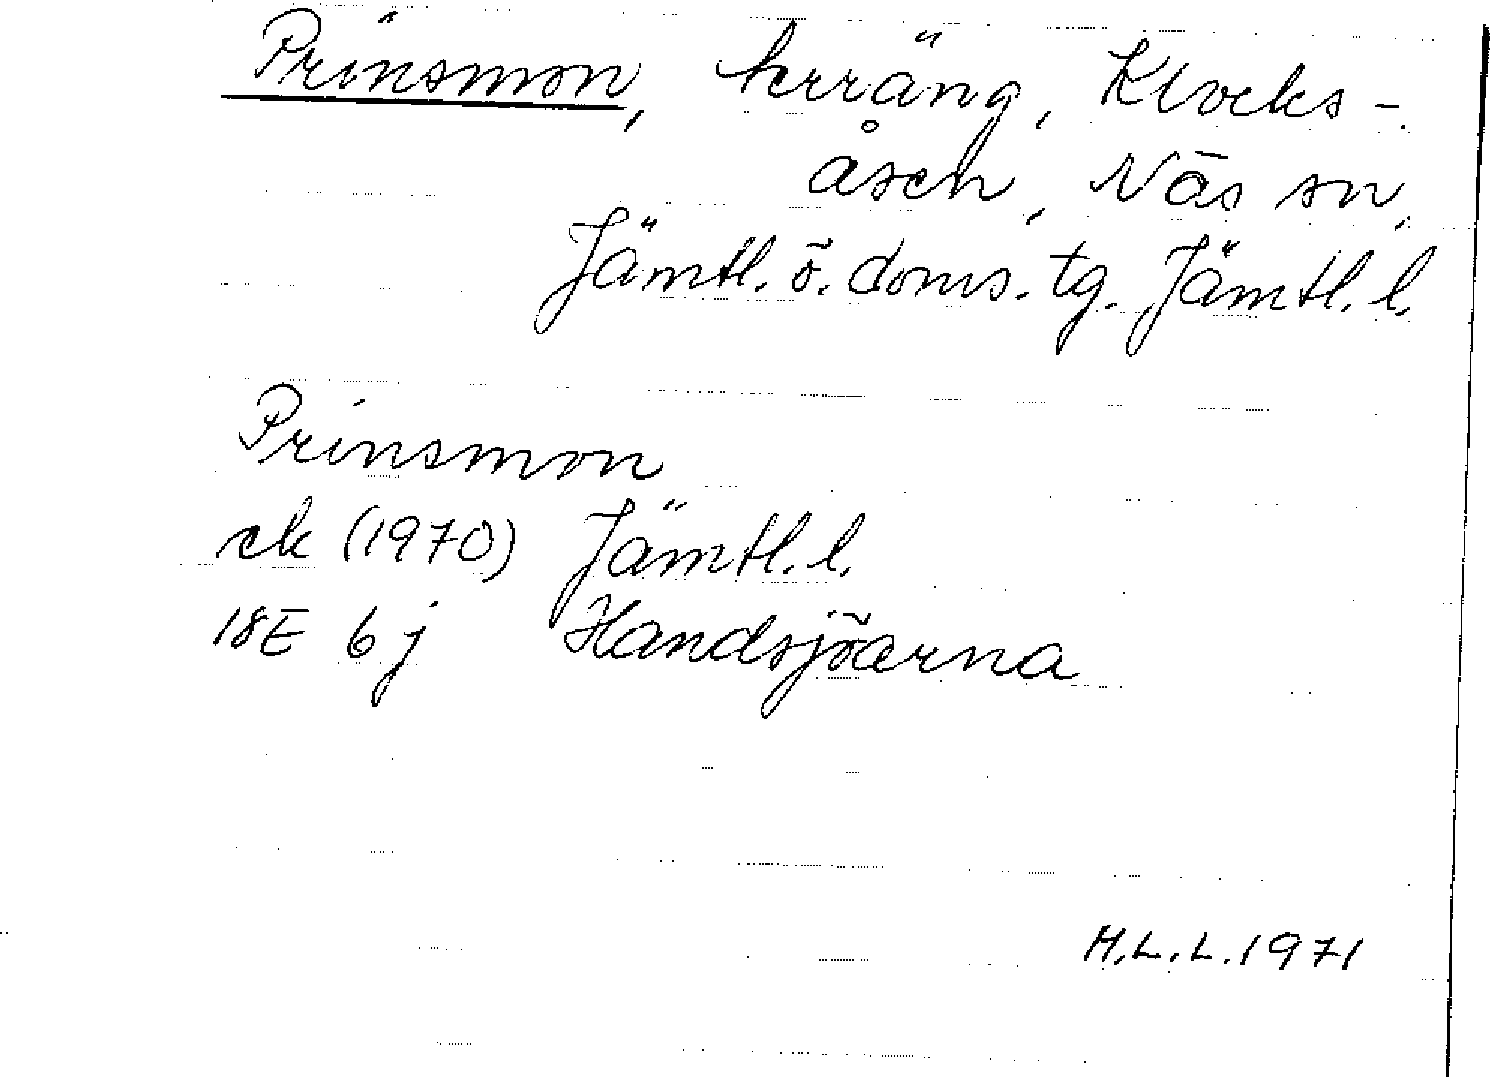 Prinsmon, terräng, Klocks-
åsen, Näs sn,
Jämtl. ö. doms. tg. Jämtl. l.
Prinsmon
ek (1970) Jämtl. l.
18E 6j Handsjöarna
M.L.L. 1971